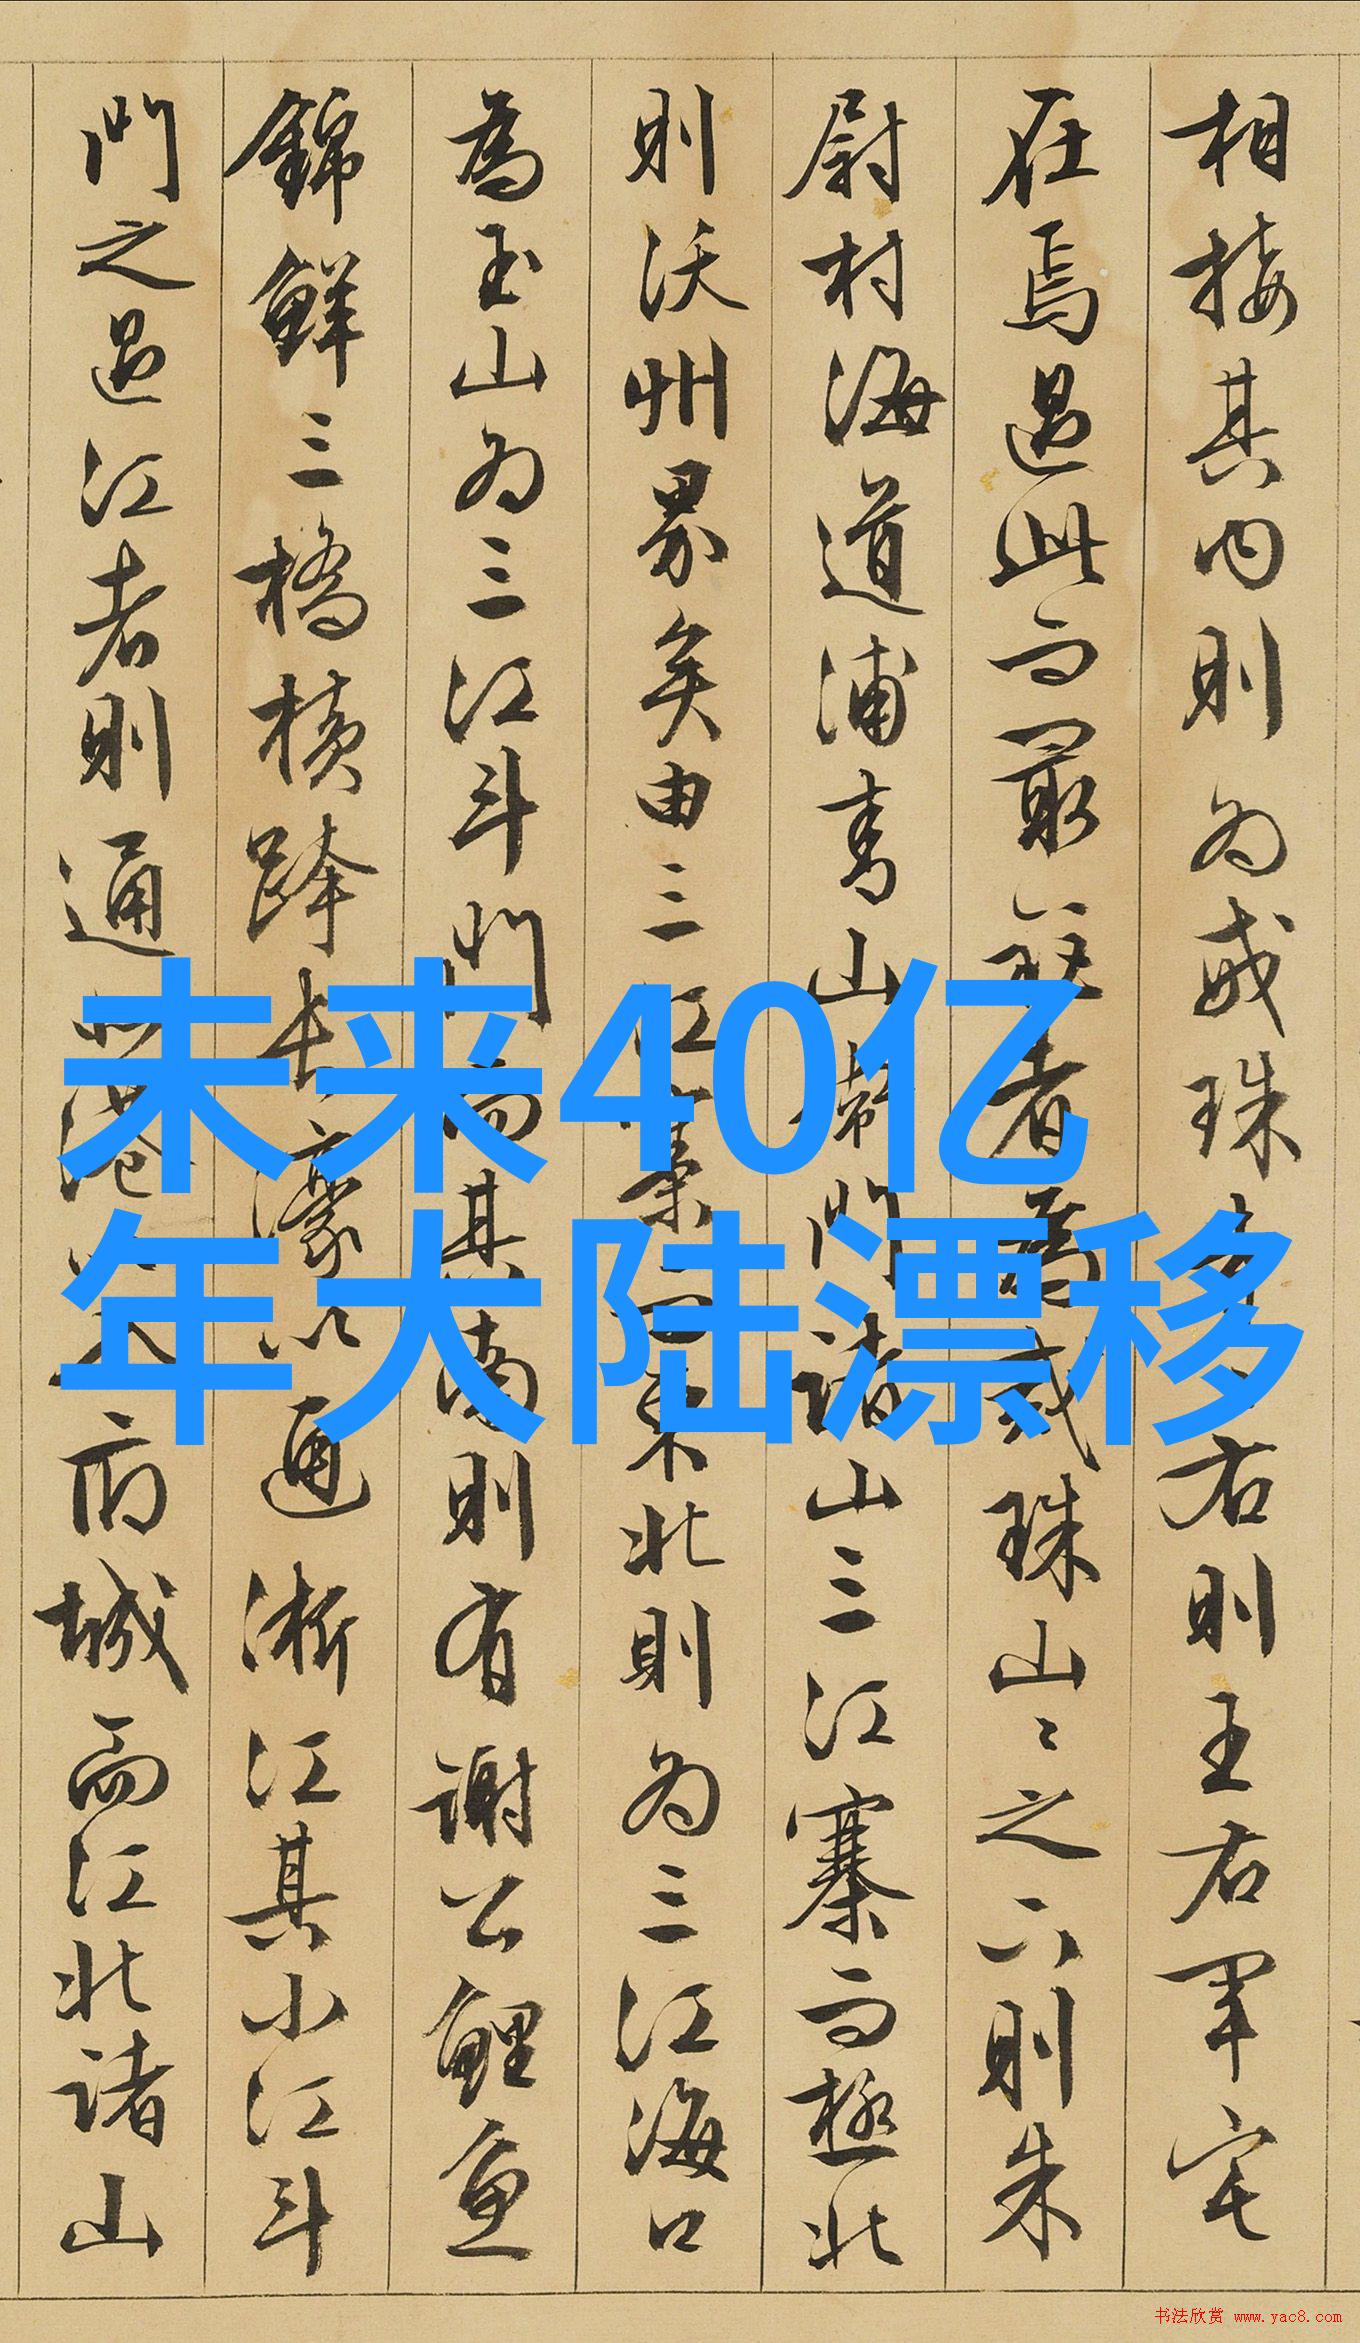 相接其内则为戒珠
右则王右军宅
在焉過此而最
者為戒珠山〻之下则朱
尉村海道浦
山
門諸山三江寨而極北
则沃州界矣由三江
東北则为三江海口
為玉山为三江斗門
其南则有謝公鯉魚
錦鮮三橋横跨
通浙江其小江斗
門之過江者则通
府城而江北诸山
未来40亿
年大陆漂移
书法欣赏 www.yac8.com